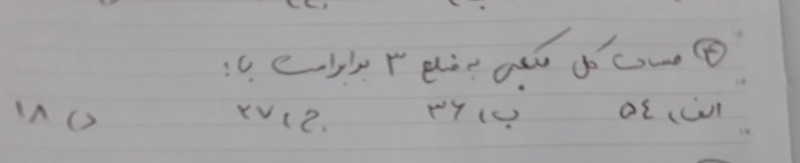 ④ مساحت کل مکعبی به ضلع ۳ برابراست با:
الف) ۵۴ ب) ۳۶ ج) ۲۷ د) ۱۸